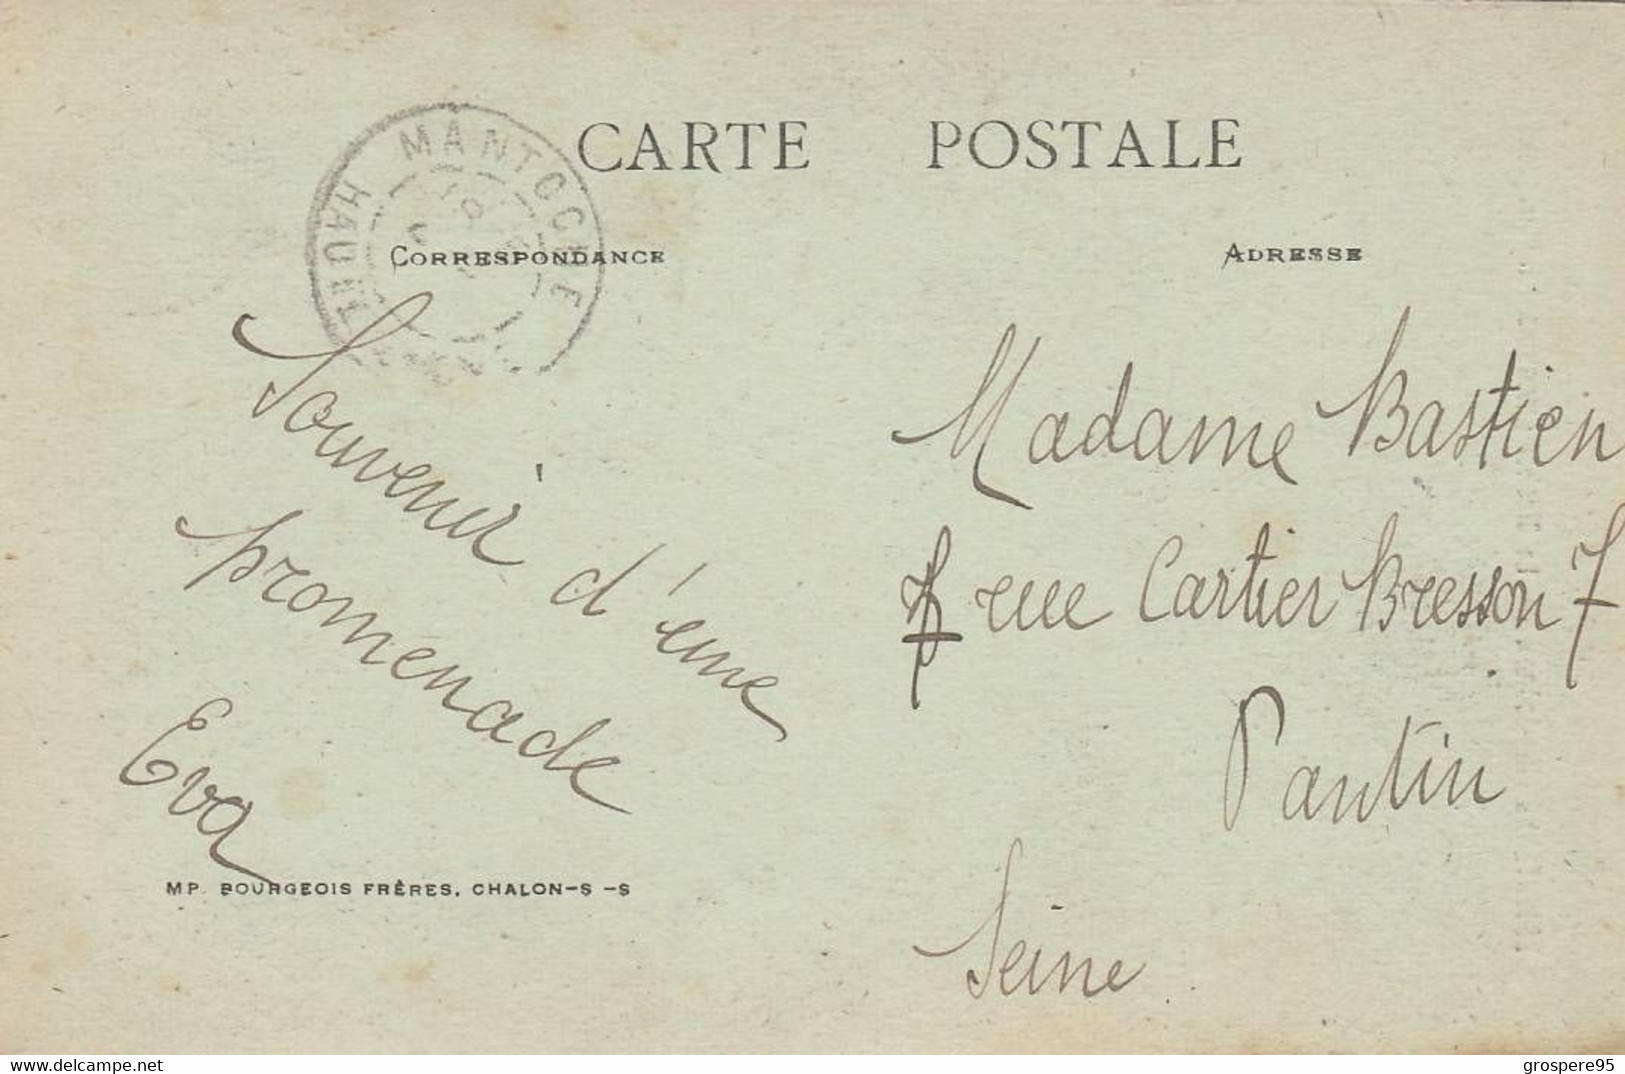 CARTE POSTALE
MANTOCHE
HAUTE
CORRESPONDANCE
ADRESSE
Souvenir d'une
promenade
Eva
MP. BOURGEOIS FRÈRES, CHALON-S -S
Madame Bastien
7 rue Cartier Bresson 7
Pantin
Seine
www.delcampe.net
grospere95